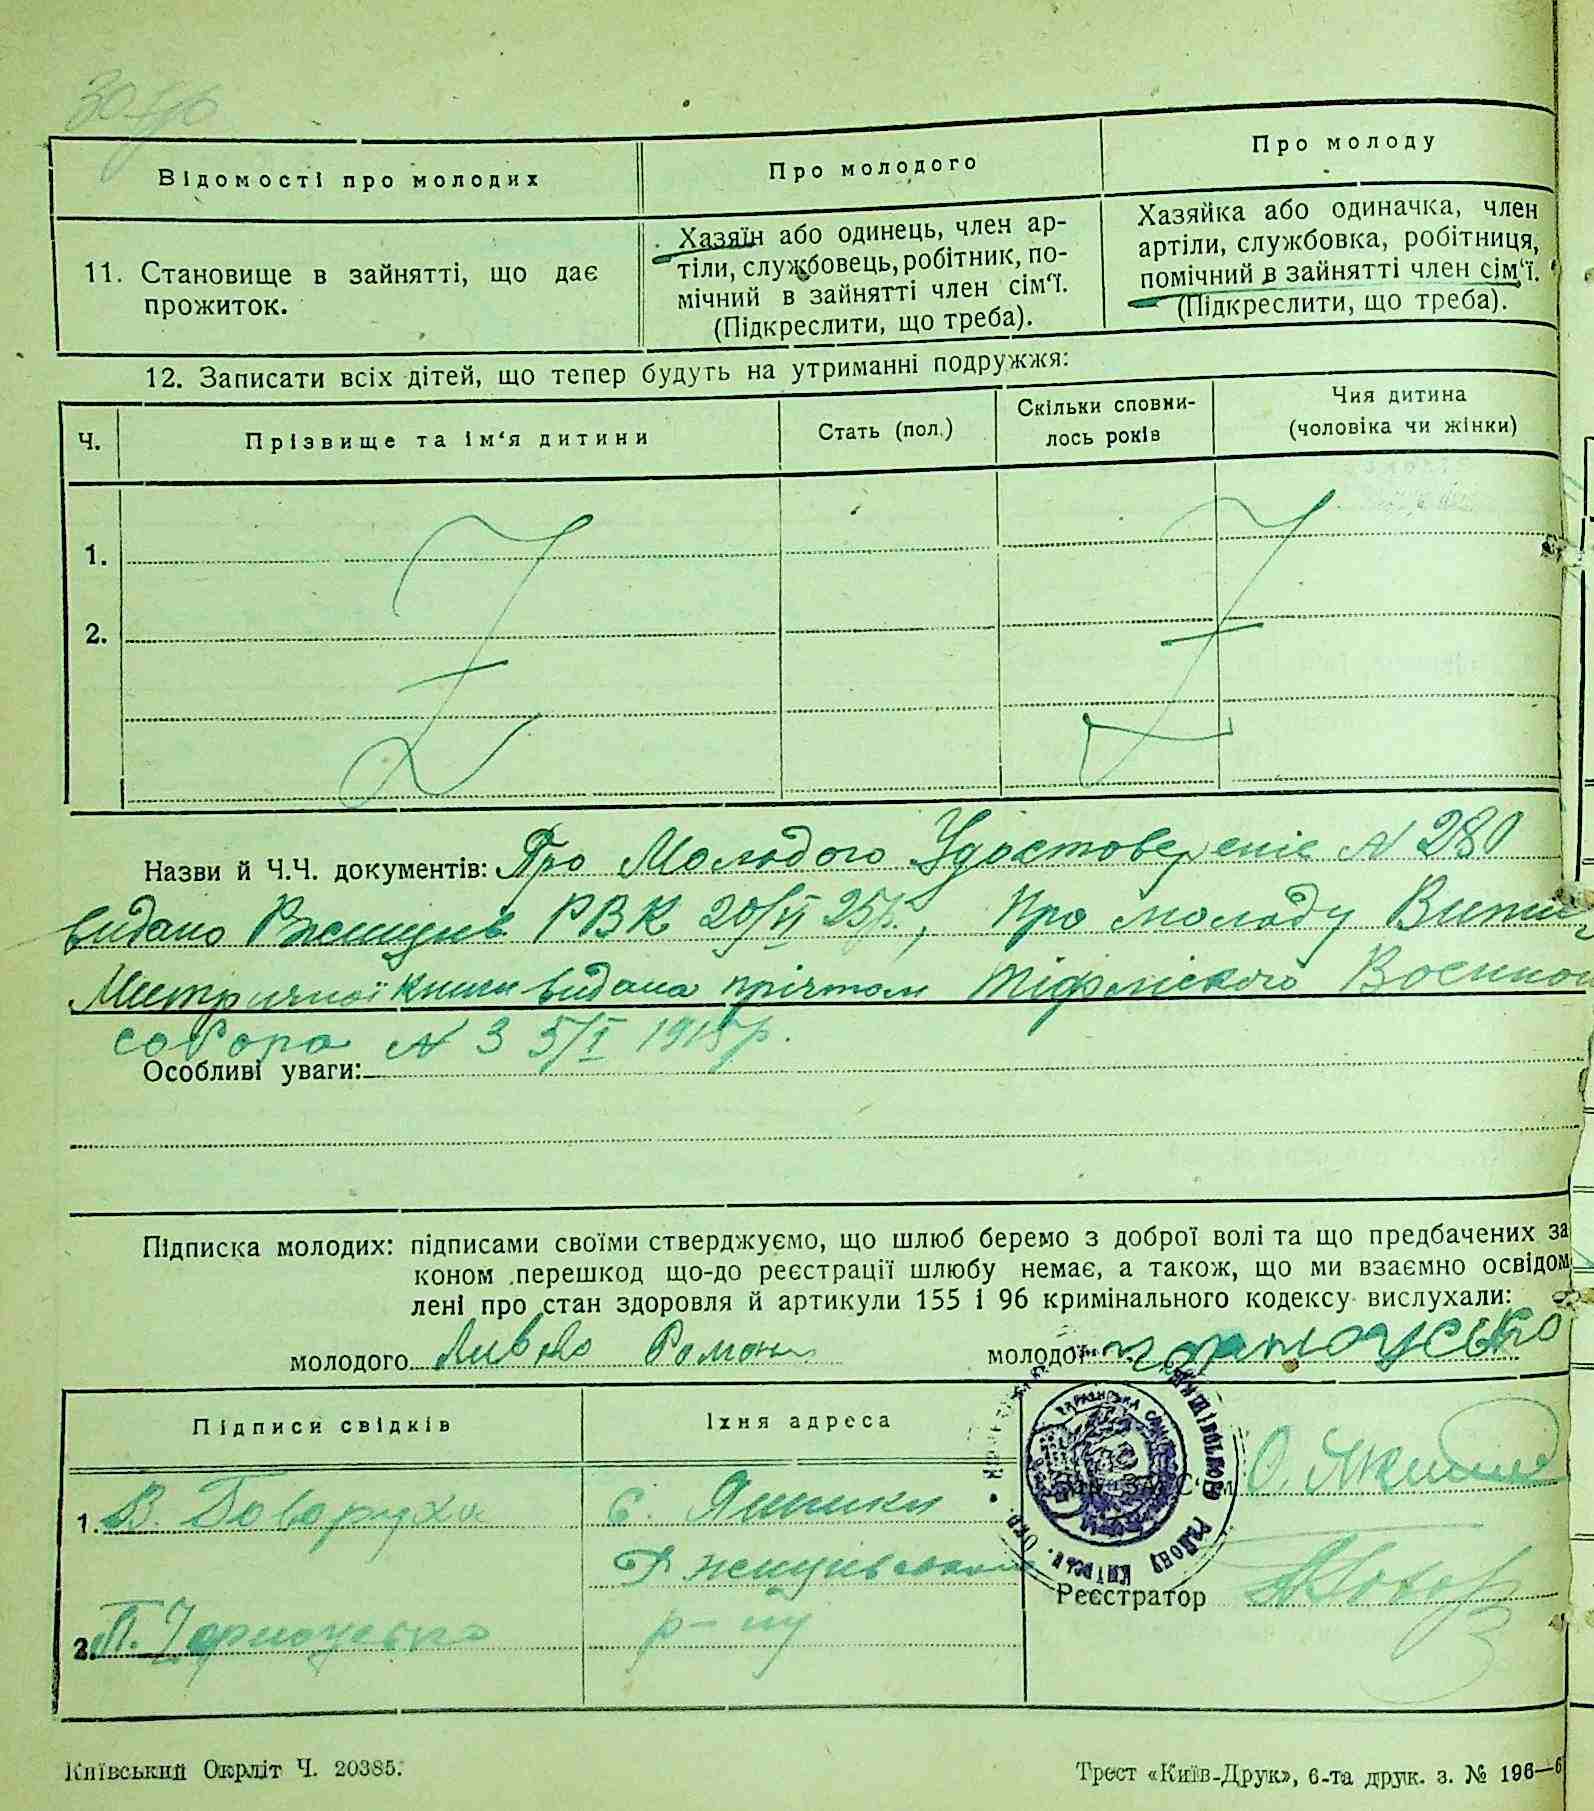 Відомості про молодих
Про молодого
Про молоду
11. Становище в зайнятті, що дає
прожиток.
Хазяїн або одинець, член ар-
тіли, службовець, робітник, по-
мічний в зайнятті член сім'ї.
(Підкреслити, що треба).
Хазяйка або одиначка, член
артіли, службовка, робітниця,
помічний в зайнятті член сім'ї.
(Підкреслити, що треба).
12. Записати всіх дітей, що тепер будуть на утриманні подружжя:
Ч.
Прізвище та ім'я дитини
Стать (пол.)
Скільки сповни-
лось років
Чия дитина
(чоловіка чи жінки)
1.
2.
Назви й Ч.Ч. документів: Про Молодого Удостовереніе N 280
видано РВК 20/VI 25р., Про молоду
Метричної книги видана прічтом Тіфліского Военного
собора N 3 5/I
Особливі уваги:
Підписка молодих: підписами своїми стверджуємо, що шлюб беремо з доброї волі та що предбачених за
коном перешкод що-до реєстрації шлюбу немає, а також, що ми взаємно освідом
лені про стан здоровля й артикули 155 і 96 кримінального кодексу вислухали:
молодого Роман
молодої
Підписи свідків
Їхня адреса
1. В. Говоруха
с. Япники
р-ну
2. П. Чорноусько
Реєстратор
Київський Окрліт Ч. 20385.
Трест «Київ-Друк», 6-та друк. з. № 196—6